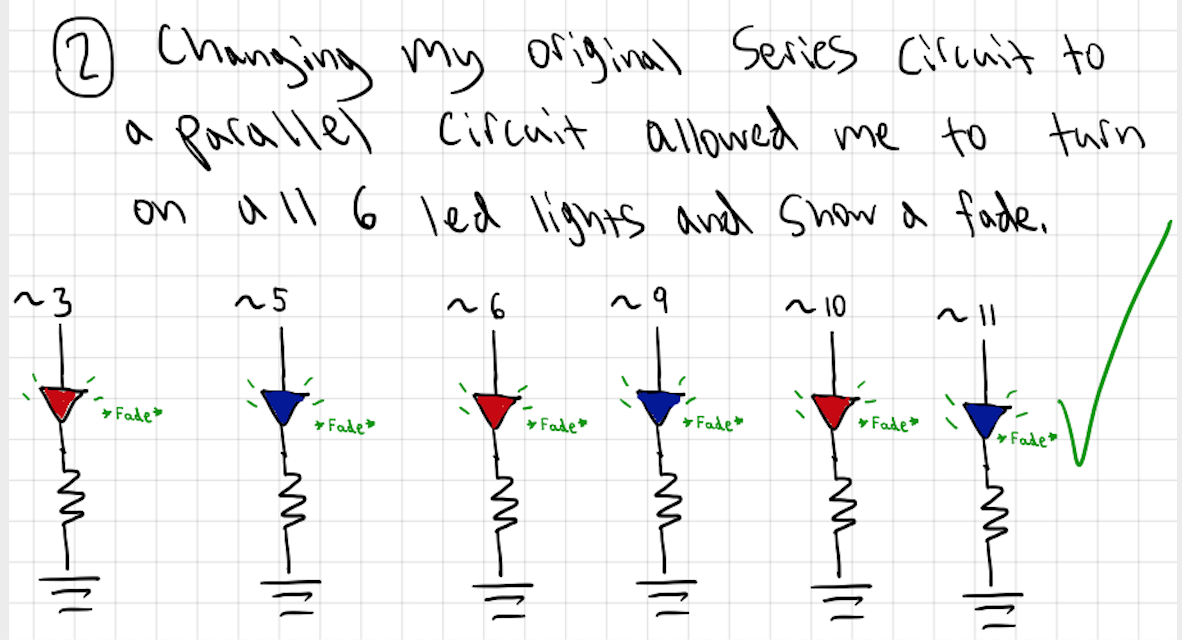 ② Changing my original series circuit to
a parallel circuit allowed me to turn
on all 6 led lights and show a fade.
~3 ~5 ~6 ~9 ~10 ~11
*Fade* *Fade* *Fade* *Fade* *Fade* *Fade*